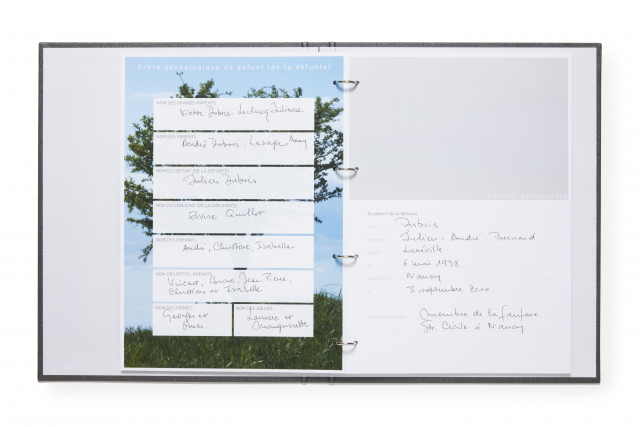 Arbre généalogique du défunt (de la défunte)
NOM DES GRANDS-PARENTS
Victor Dubois - Leclercq Julienne
NOM DES PARENTS
André Dubois - Lesage
NOM DU DÉFUNT (DE LA DÉFUNTE)
Julien Dubois
NOM DU CONJOINT (DE LA CONJOINTE)
Elvire Quillot
NOM DES ENFANTS
André, Christine Isabelle
NOM DES PETITS-ENFANTS
Vincent,
Christian et Isabelle
NOM DES FRÈRES
Georges et
NOM DES SŒURS
Laurence et
Marguerite
Détails personnels
Du défunt (de la défunte)
Dubois
Julien - André - Bernard
Lunéville
6 mai 1938
Nancy
3 septembre 2010
Membre de la fanfare
Ste Cécile à Nancy